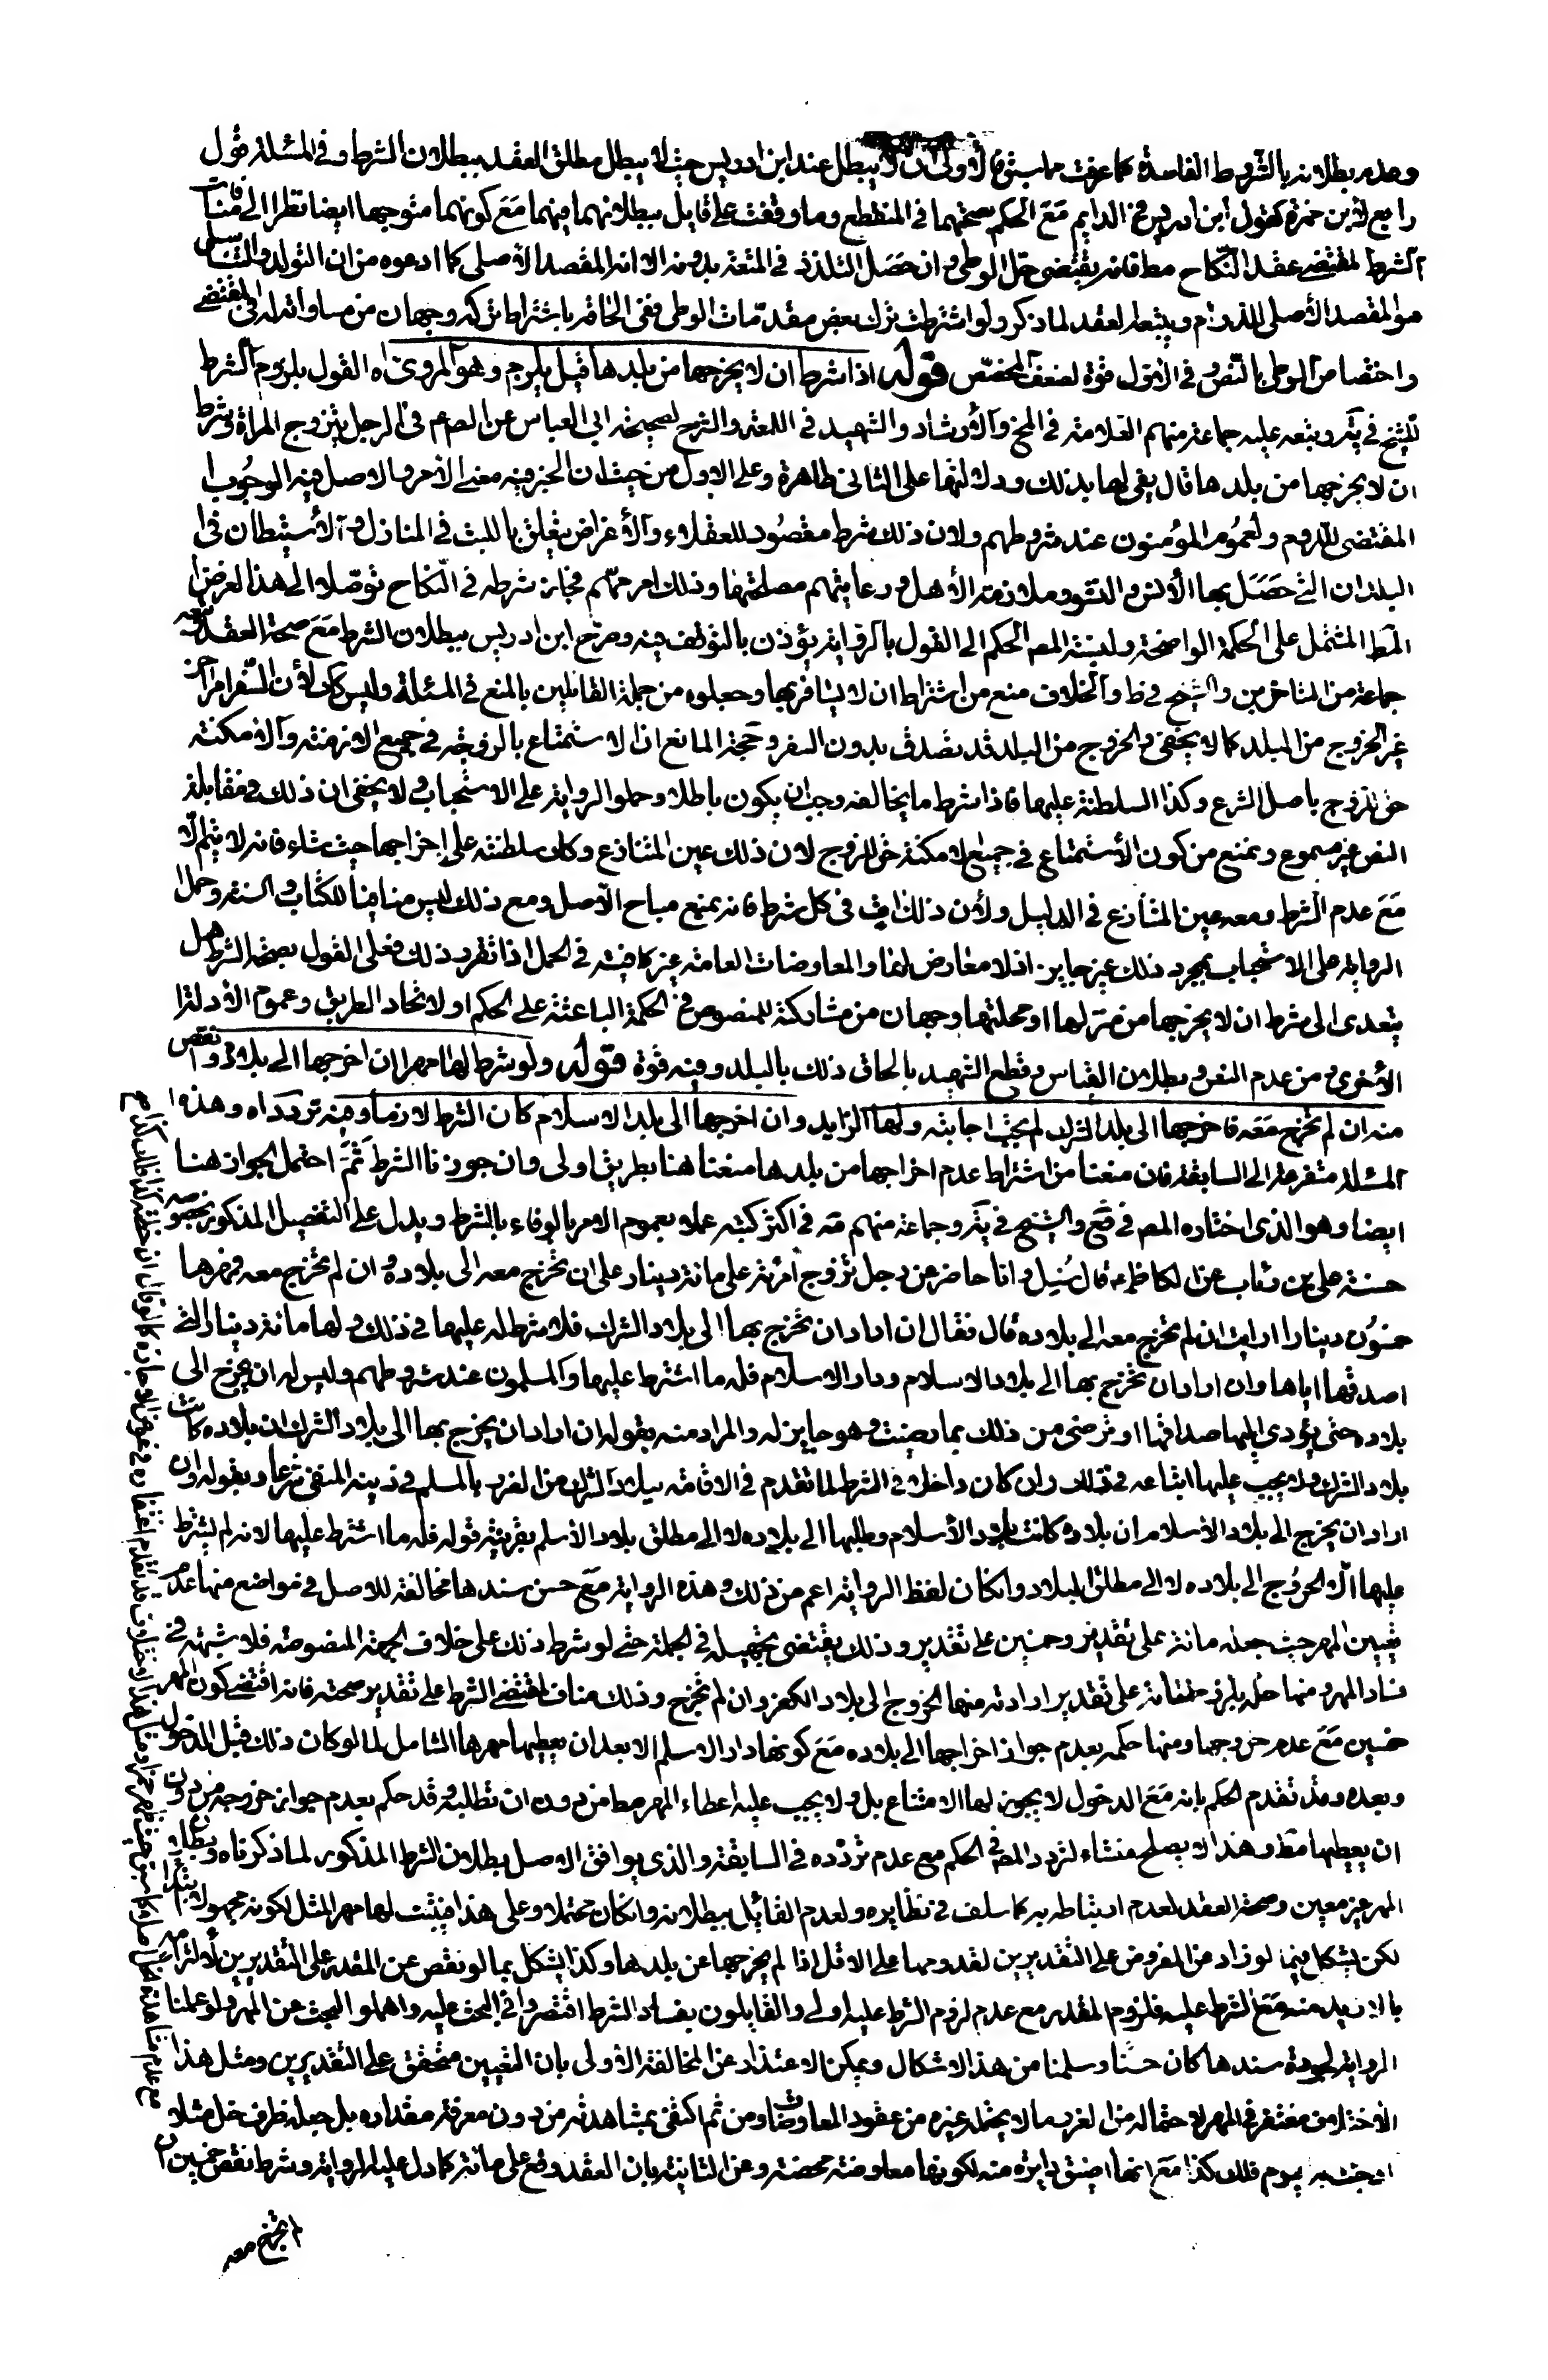 وعدم بطلانه بالشروط الفاسدة كما عرفت مما سبق الاولى ان لا يبطل عند ابن ادريس حيث لا يبطل مطلق العقد ببطلان الشرط وفي المسئلة قول
رابع لابن حمزة كقول ابن ادريس في الدايم مع الحكم بصحتهما في المنقطع وما وقفت على قايل ببطلانهما فيهما مع كونهما متوجها ايضا نظرا الى منافات
الشرط لمقتضى عقد النكاح مط فانه يقتضى حل الوطى وان حصل التلذذ في المتعة بدونه الا انه المقصد الاصلى كما ادعوه من ان التولد والتناسل
هو المقصد الأصلى للدوام ويتبعه العقد لما ذكر ولو اشترطت ترك بعض مقدمات الوطى ففى الحاقه باشتراط تركه وجهان من مساواته له في المقتضى
واختصاص الوطى بالنص وفي الاول قوة لضعف المخصص قوله اذا شرط ان لا يخرجها من بلدها قيل يلزم وهو المروى اه القول بلزوم الشرط
للشيخ في يه وتبعه عليه جماعة منهم العلامة في المخ والارشاد والشهيد في اللمعة والشرح لصحيحة ابى العباس عن الص ع م في الرجل يتزوج المراة وشرط
ان لا يخرجها من بلدها قال يفى لها بذلك ودلالتها على الثانى ظاهرة وعلى الاول من حيث ان الخبر فيه معنى الأمر والاصل فيه الوجوب
المقتضى للزوم ولعموم المؤمنون عند شروطهم ولان ذلك شرط مقصود للعقلاء والأغراض يتعلق باللبث في المنازل والأستيطان في
البلدان التى حصل بها الأنس والنشو وملازمة الأهل ورعايتهم مصلحتها وذلك امر مهم فجاز شرطه في النكاح توصلا الى هذا الغرض
المط المشتمل على الحكمة الواضحة ولنسبة المص الحكم الى القول بالرواية يؤذن بالتوقف فيه وصرح ابن ادريس ببطلان الشرط مع صحة العقد وتبعه
جماعة من المتاخرين والشيخ في ط والخلاف منع من اشتراط ان لا يسافر بها وجعلوه من جملة القائلين بالمنع في المسئلة وليس كك لأن السفر امر اخر
غير الخروج من البلد كما لا يخفى والخروج من البلد قد يصدق بدون السفر وحجة المانع ان الاستمتاع بالزوجة في جميع الازمنة والامكنة
حق للزوج باصل الشرع وكذا السلطنة عليها فاذا شرط ما يخالفه وجب ان يكون باطلا وحملوا الرواية على الاستحباب ولا يخفى ان ذلك في مقابلة
النص غير مسموع ونمنع من كون الأستمتاع في جميع الامكنة حق للزوج لان ذلك عين المتنازع وكك سلطنته على اخراجها حيث شاء فانه لا يتم الا
مع عدم الشرط ومعه عين المتنازع في الدليل ولأن ذلك ات في كل شرط فانه يمنع مباح الاصل ومع ذلك ليس منافيا للكتاب والسنة وحمل
الرواية على الاستحباب بمجرد ذلك غير جايز اذ لا معارض لها والمعارضات العامة غير كافية في الحمل اذا تقرر ذلك فعلى القول بصحة الشرط هل
يتعدى الى شرط ان لا يخرجها من منزلها او محلتها وجهان من مشاركته للمنصوص في الحكمة الباعثة على الحكم او لاتحاد الطريق وعموم الادلة
الأخرى ومن عدم النص وبطلان القياس وقطع الشهيد بالحاق ذلك بالبلد وفيه قوة قوله ولو شرط لها مهرا ان اخرجها الى بلاده وانقص
منه ان لم تخرج معه فاخرجها الى بلد الشرك لم يجب اجابته ولها الزايد وان اخرجها الى بلد الاسلام كان الشرط لازما وفيه تردد اه وهذه
المسئلة متفرعة الى السابقة فان منعنا من اشتراط عدم اخراجها من بلدها منعنا هنا بطريق اولى وان جوزنا الشرط ثم احتمل الجواز هنا
ايضا وهو الذى اختاره المص في فع والشيخ في يه وجماعة منهم مه في اكثر كتبه عملا بعموم الامر بالوفاء بالشرط ويدل على التفصيل المذكور بخصوصه
حسنة على بن رئاب عن الكاظم ع قال سئل وانا حاضر عن رجل تزوج امرئة على مائة دينار على ان تخرج معه الى بلاده وان لم تخرج معه فمهرها
خمسون دينارا ارايت ان لم تخرج معه الى بلاده قال فقال ان اراد ان تخرج بها الى بلاد الشرك فلا شرط له عليها في ذلك ولها مائة دينار التى
اصدقها اياها وان اراد ان تخرج بها الى بلاد الاسلام ودار الاسلام فله ما اشترط عليها والمسلمون عند شروطهم وليس له ان يخرج الى
بلاده حتى يؤدى اليها صداقها او ترضى من ذلك بما رضيت وهو جايز له والمراد منه بقوله ان اراد ان يخرج بها الى بلاد الشرك ان بلاده كانت
بلاد الشرك ولا يجب عليها اتباعه في ذلك وان كان داخلا في الشرط لما تقدم في الاقامة ببلاد الشرك من الضرر بالمسلم في دينه المنفى شرعا وبقوله وان
اراد ان يخرج الى بلاد الاسلام ان بلاده كانت بلاد الأسلام وطلبها الى بلاده لا الى مطلق بلاد الأسلام بقرينة قوله فله ما اشترط عليها لانه لم يشترط
عليها الا الخروج الى بلاده لا الى مطلق البلاد وانكان لفظ الرواية اعم من ذلك وهذه الرواية مع حسن سندها مخالفة للاصل في مواضع منها عدم
تعيين المهر حيث جعله مائة على تقدير وخمسين على تقدير وذلك يقتضى تجهيله في الجملة حتى لو شرط ذلك على خلاف الجهة المنصوصة فلا شبهة في
فساد المهر ومنها حكمه بلزوم المائة على تقدير ارادته منها الخروج الى بلاد الكفر وان لم تخرج وذلك مناف لمقتضى الشرط على تقدير صحته فانه اقتضى كون المهر
خمسين مع عدم خروجها ومنها حكمه بعدم جواز اخراجها الى بلاده مع كونها دار الاسلام الا بعد ان يعطيها مهرها الشامل لما لو كان ذلك قبل الدخول
وبعده وقد تقدم الحكم بانه مع الدخول لا يجوز لها الامتناع بل ولا يجب عليه اعطاء المهر مط من دون ان تطلبه وقد حكم بعدم جواز خروجه من دون
ان يعطيها مط وهذا لا يصلح منشاء لتردد المص في الحكم مع عدم تردده في السابقة والذى يوافق الاصل بطلان الشرط المذكور لما ذكرناه وبطلان
المهر غير معين وصحة العقد لعدم ارتباطه به كما سلف في نظايره ولعدم القائل ببطلانه وانكان محتملا وعلى هذا فيثبت لها مهر المثل لكونه مجهولا ابتداء
لكن يشكل فيما لو زاد عن المفروض على التقديرين لقدومها على الاقل اذا لم يخرجها عن بلدها وكذا يشكل بما لو نقص عن المقدر على التقديرين لالتزامه
بالازيد منه مع الشرط عليه فلزوم المقدر مع عدم لزوم الشرط عليه اولى والقايلون بفساد الشرط اقتصروا في البحث عليه واهملوا البحث عن المهر ولو عملنا
الرواية لجودة سندها كان حسنا وسلمنا من هذا الاشكال ويمكن الاعتذار عن المخالفة الاولى بان التعيين متحقق على التقديرين ومثل هذا
الأختلاف مغتفر في المهر لاحتماله من الغرر ما لا يحتمله غيره من عقود المعاوضات ومن ثم اكتفى بمشاهدته من دون معرفة مقداره بل جعله ظرف خل مثلا
يوم فلك كذا مع انها اضيق دايرة منه لكونها معاوضة محضة وعن الثانية بان العقد وقع على مائة كما دل عليه الرواية وشرط نقص خمسين ان
لم تخرج معه